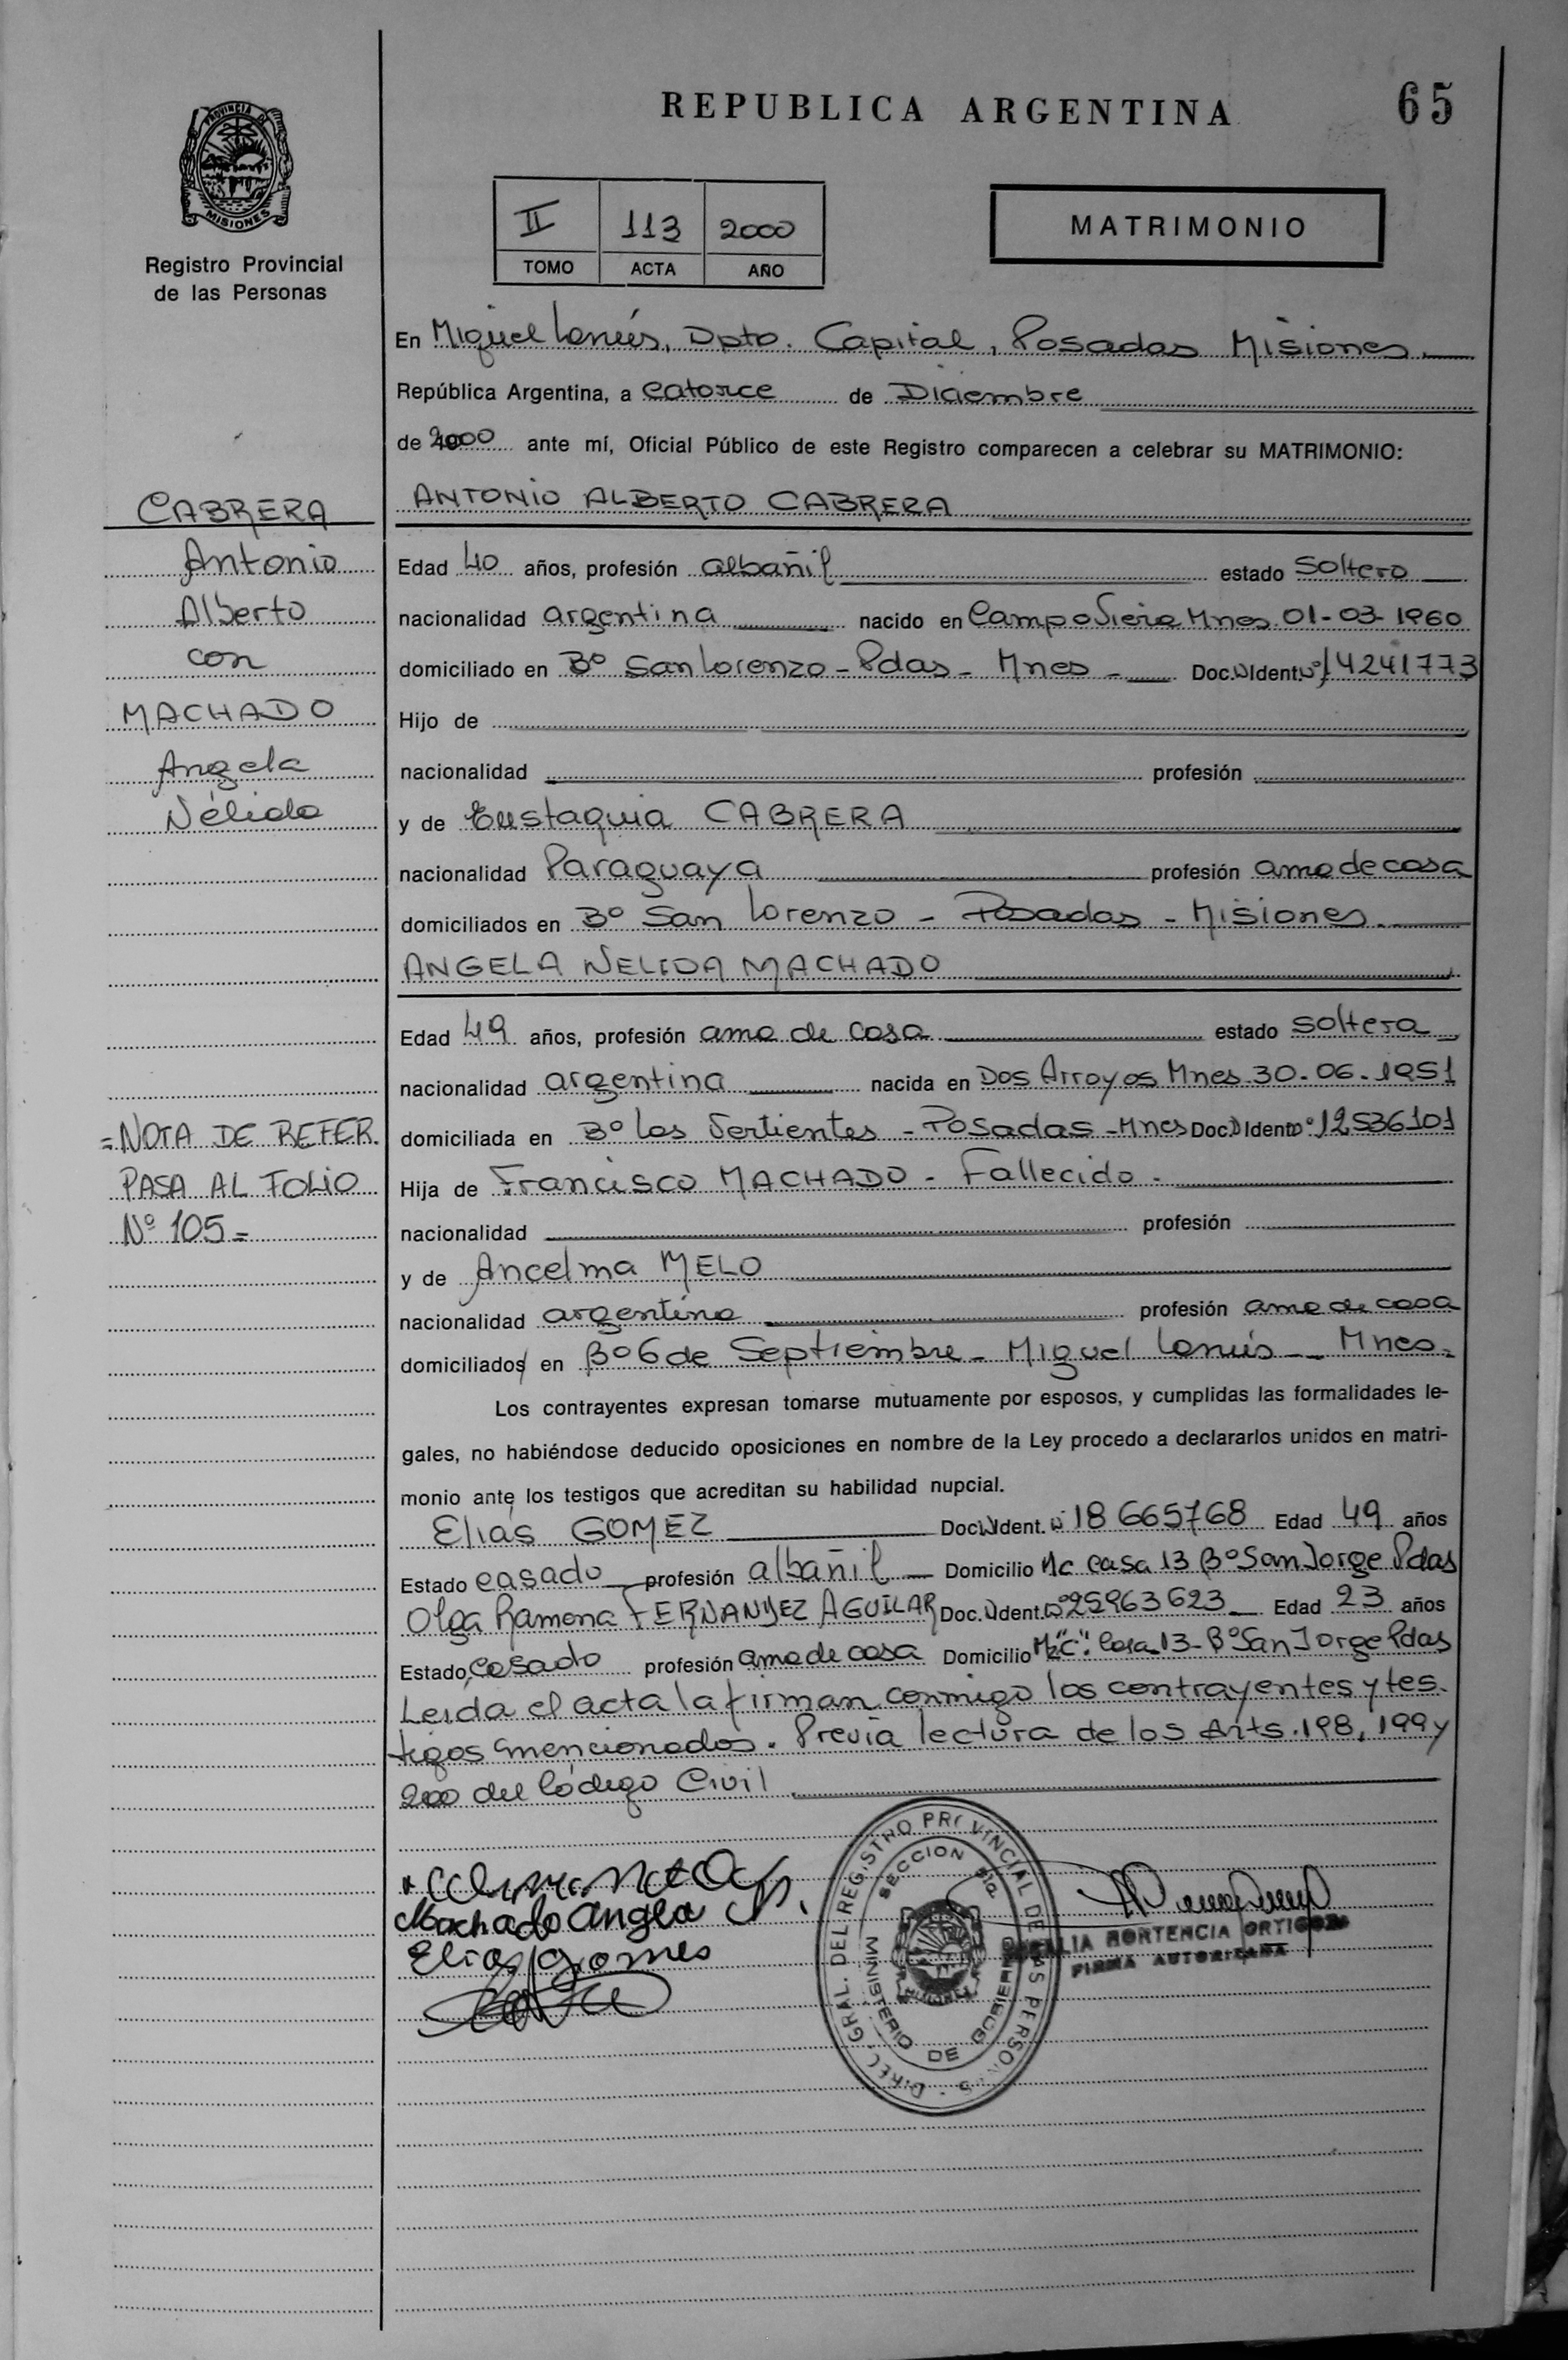 REPUBLICA ARGENTINA
65
PROVINCIA DE
MISIONES
Registro Provincial
de las Personas
II 113 2000
TOMO ACTA AÑO
MATRIMONIO
En Miguel Lanús, Dpto. Capital, Posadas Misiones
República Argentina, a catorce de Diciembre
de 2000 ante mí, Oficial Público de este Registro comparecen a celebrar su MATRIMONIO:
ANTONIO ALBERTO CABRERA
Edad 40 años, profesión albañil estado soltero
nacionalidad argentina nacido en Campo Viera Mnes. 01-03-1960
domiciliado en Bº San Lorenzo - Pdas - Mnes - Doc. N Ident. Nº 14241773
Hijo de
nacionalidad profesión
y de Eustaquia CABRERA
nacionalidad Paraguaya profesión ama de casa
domiciliados en Bº San Lorenzo - Posadas - Misiones.
ANGELA NELIDA MACHADO
Edad 49 años, profesión ama de casa estado soltera
nacionalidad argentina nacida en Dos Arroyos Mnes 30-06-1951
domiciliada en Bº Las Vertientes - Posadas - Mnes Doc. N Ident. Nº 12536101
Hija de Francisco MACHADO - Fallecido.
nacionalidad profesión
y de Ancelma MELO
nacionalidad argentina profesión ama de casa
domiciliados en Bº 6 de Septiembre - Miguel Lanús - Mnes.
Los contrayentes expresan tomarse mutuamente por esposos, y cumplidas las formalidades le-
gales, no habiéndose deducido oposiciones en nombre de la Ley procedo a declararlos unidos en matri-
monio ante los testigos que acreditan su habilidad nupcial.
Elias GOMEZ Doc. N Ident. Nº 18665768 Edad 49 años
Estado casado profesión albañil Domicilio Mc casa 13 Bº San Jorge Pdas
Olga Ramona FERNANDEZ AGUILAR Doc. N Ident. Nº 25963623 Edad 23 años
Estado casado profesión ama de casa Domicilio Mz "C". Casa 13 - Bº San Jorge Pdas
Leída el acta la firman conmigo los contrayentes y tes-
tigos mencionados. Previa lectura de los Arts. 198, 199 y
200 del Código Civil
Machado Angela N.
Elias gomes
DIREC. GRAL. DEL REGISTRO PROVINCIAL DE LAS PERSONAS
SECCION
MINISTERIO DE GOBIERNO
HORTENCIA ORTIGOZA
FIRMA AUTORIZADA
CABRERA
Antonio
Alberto
con
MACHADO
Angela
Nélida
=NOTA DE REFER.
PASA AL FOLIO
Nº 105=